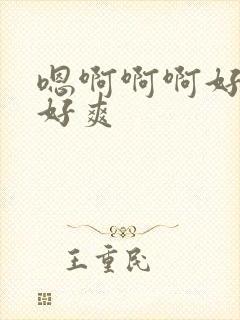 嗯啊啊啊好
好爽
王重民